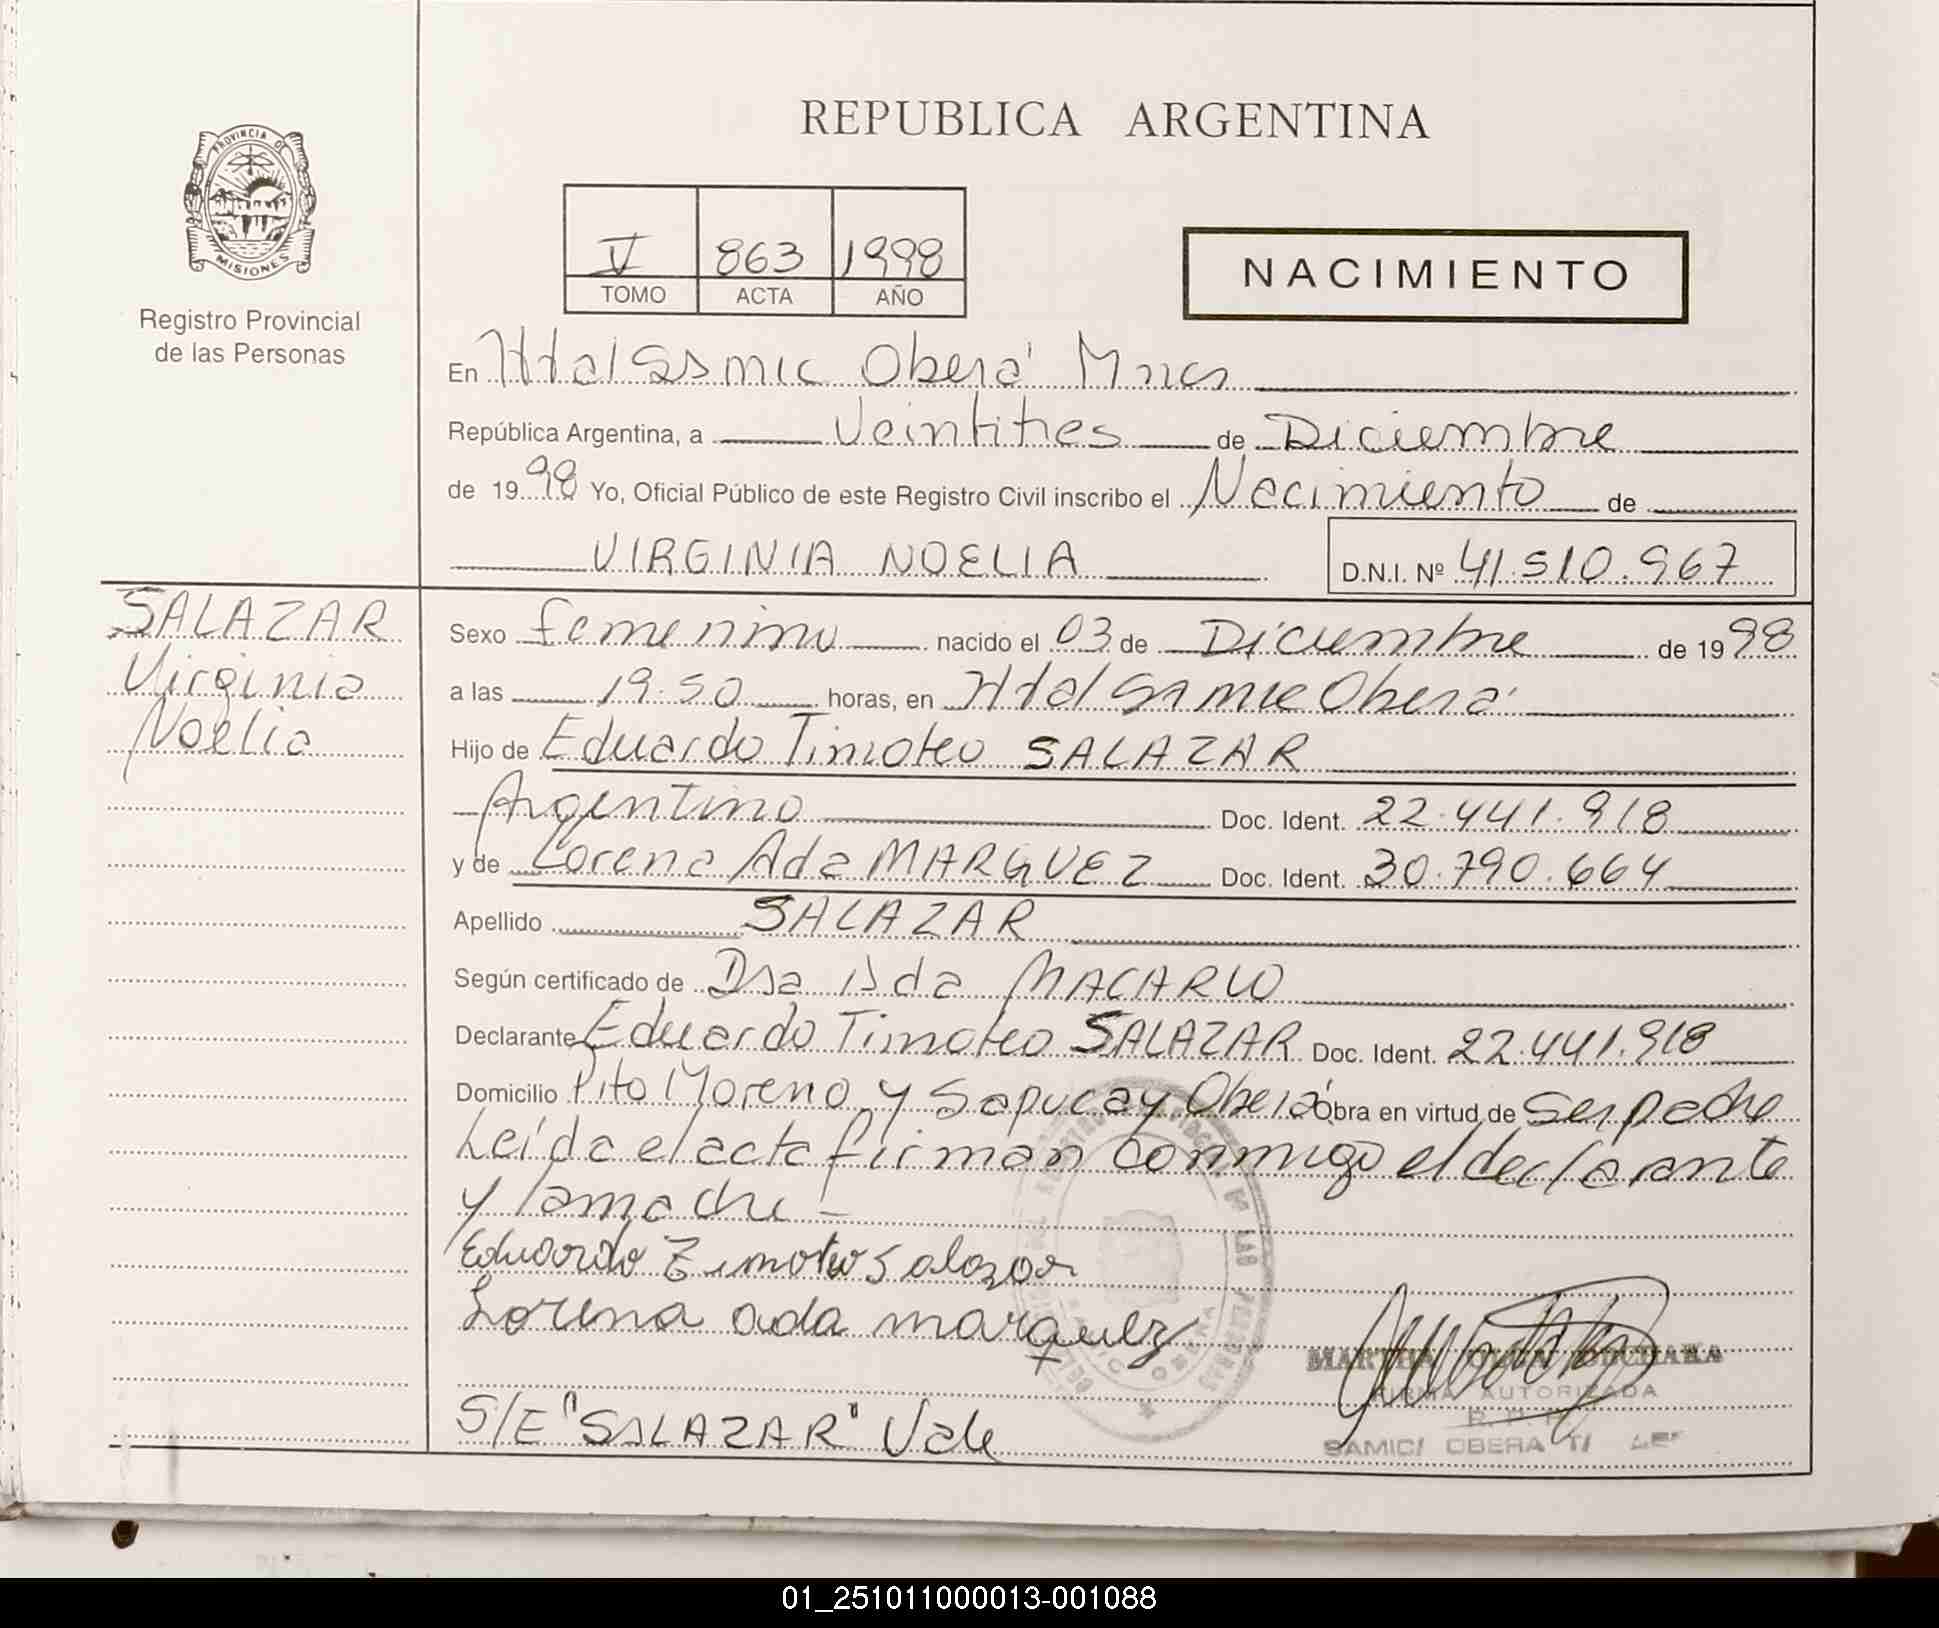 REPUBLICA ARGENTINA
PROVINCIA DE
MISIONES
Registro Provincial
de las Personas
V 863 1998
TOMO ACTA AÑO
NACIMIENTO
En Htal Samic Oberá Mnes
República Argentina, a Veintitres de Diciembre
de 1998 Yo, Oficial Público de este Registro Civil inscribo el Nacimiento de
VIRGINIA NOELIA D.N.I. Nº 41.510.967
SALAZAR
Virginia
Noelia
Sexo femenino nacido el 03 de Diciembre de 1998
a las 19.50 horas, en Htal Samic Oberá
Hijo de Eduardo Timoteo SALAZAR
Argentino Doc. Ident. 22.441.918
y de Lorena Ada MARQUEZ Doc. Ident. 30.790.664
Apellido SALAZAR
Según certificado de Dra Ada MACARIO
Declarante Eduardo Timoteo SALAZAR Doc. Ident. 22.441.918
Domicilio Pito Moreno y Sapucay Oberá Obra en virtud de Ser padre
Leída el acta firman conmigo el declarante
y la madre -
Eduardo Timoteo Salazar
Lorena ada marquez
MARTHA
FIRMA AUTORIZADA
R. P. P.
SAMIC OBERA
S/E "SALAZAR" Vale
01_251011000013-001088